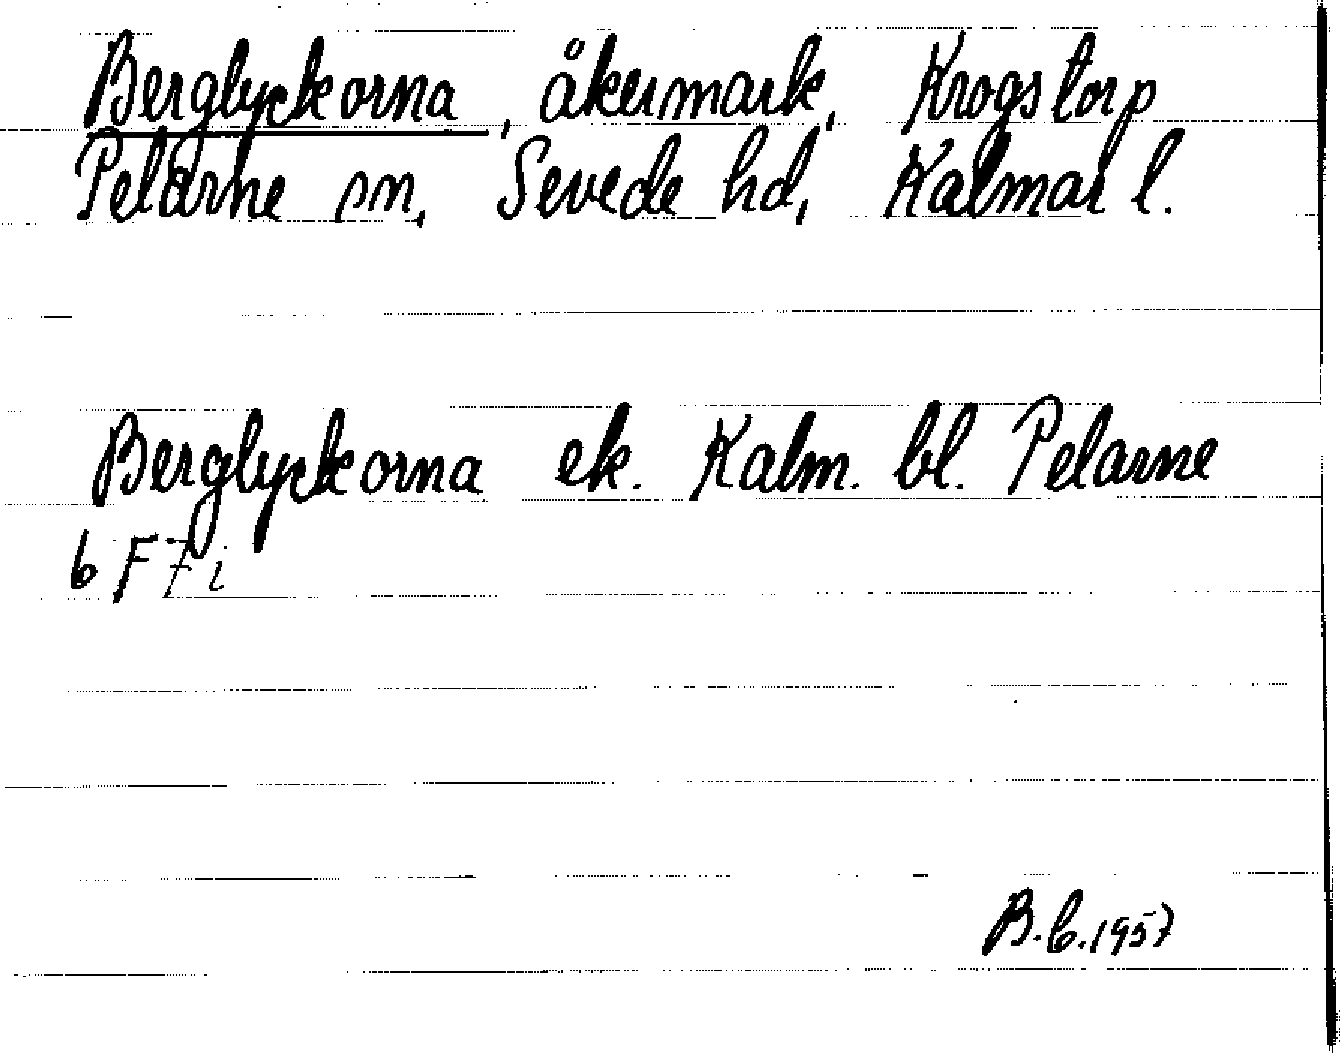 Berglyckorna, åkermark, Krogstorp
Pelarne sn, Sevede hd, Kalmar l.
Berglyckorna ek. Kalm. bl. Pelarne
6 F 7 i
B.C. 1957